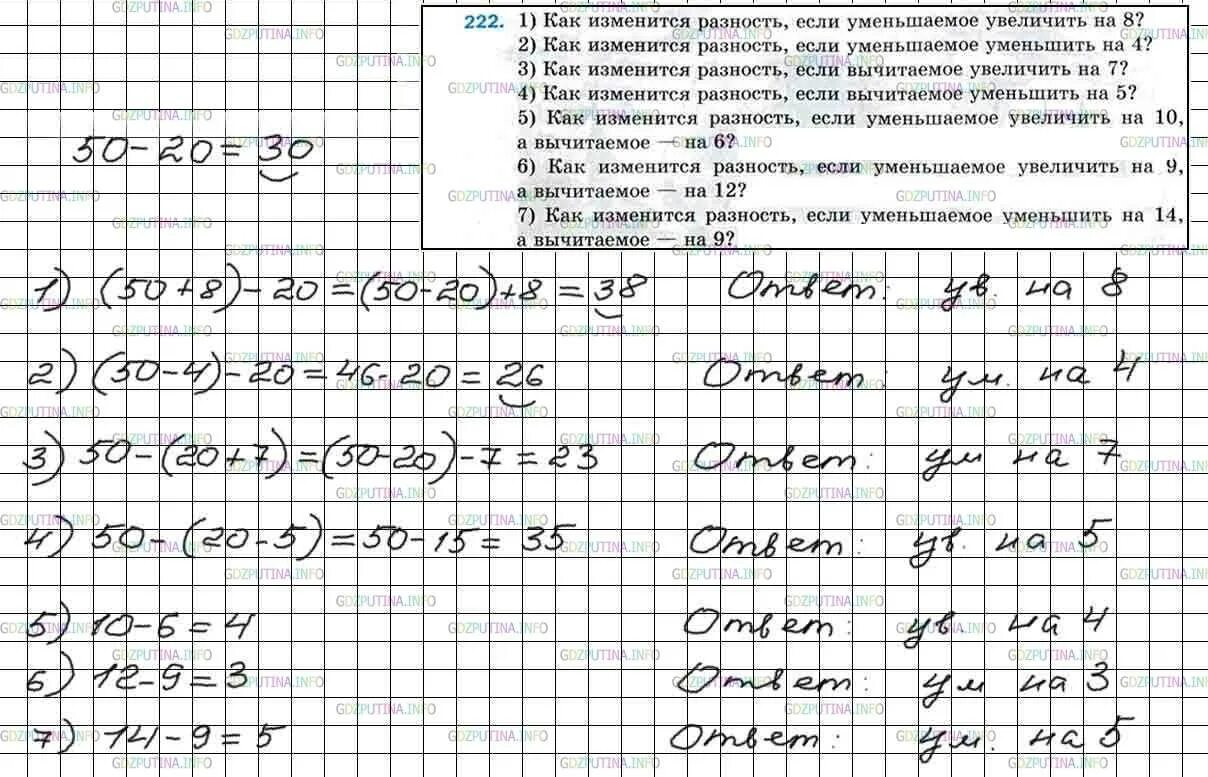 222. 1) Как изменится разность, если уменьшаемое увеличить на 8?
2) Как изменится разность, если уменьшаемое уменьшить на 4?
3) Как изменится разность, если вычитаемое увеличить на 7?
4) Как изменится разность, если вычитаемое уменьшить на 5?
5) Как изменится разность, если уменьшаемое увеличить на 10,
а вычитаемое — на 6?
6) Как изменится разность, если уменьшаемое увеличить на 9,
а вычитаемое — на 12?
7) Как изменится разность, если уменьшаемое уменьшить на 14,
а вычитаемое — на 9?
50-20=30
1) (50+8)-20=(50-20)+8=38 Ответ: ув. на 8
2) (50-4)-20=46-20=26 Ответ: ум. на 4
3) 50-(20+7)=(50-20)-7=23 Ответ: ум на 7
4) 50-(20-5)=50-15=35 Ответ: ув. на 5
5) 10-6=4 Ответ: ув. на 4
6) 12-9=3 Ответ: ум на 3
7) 14-9=5 Ответ: ум. на 5
GDZPUTINA.INFO